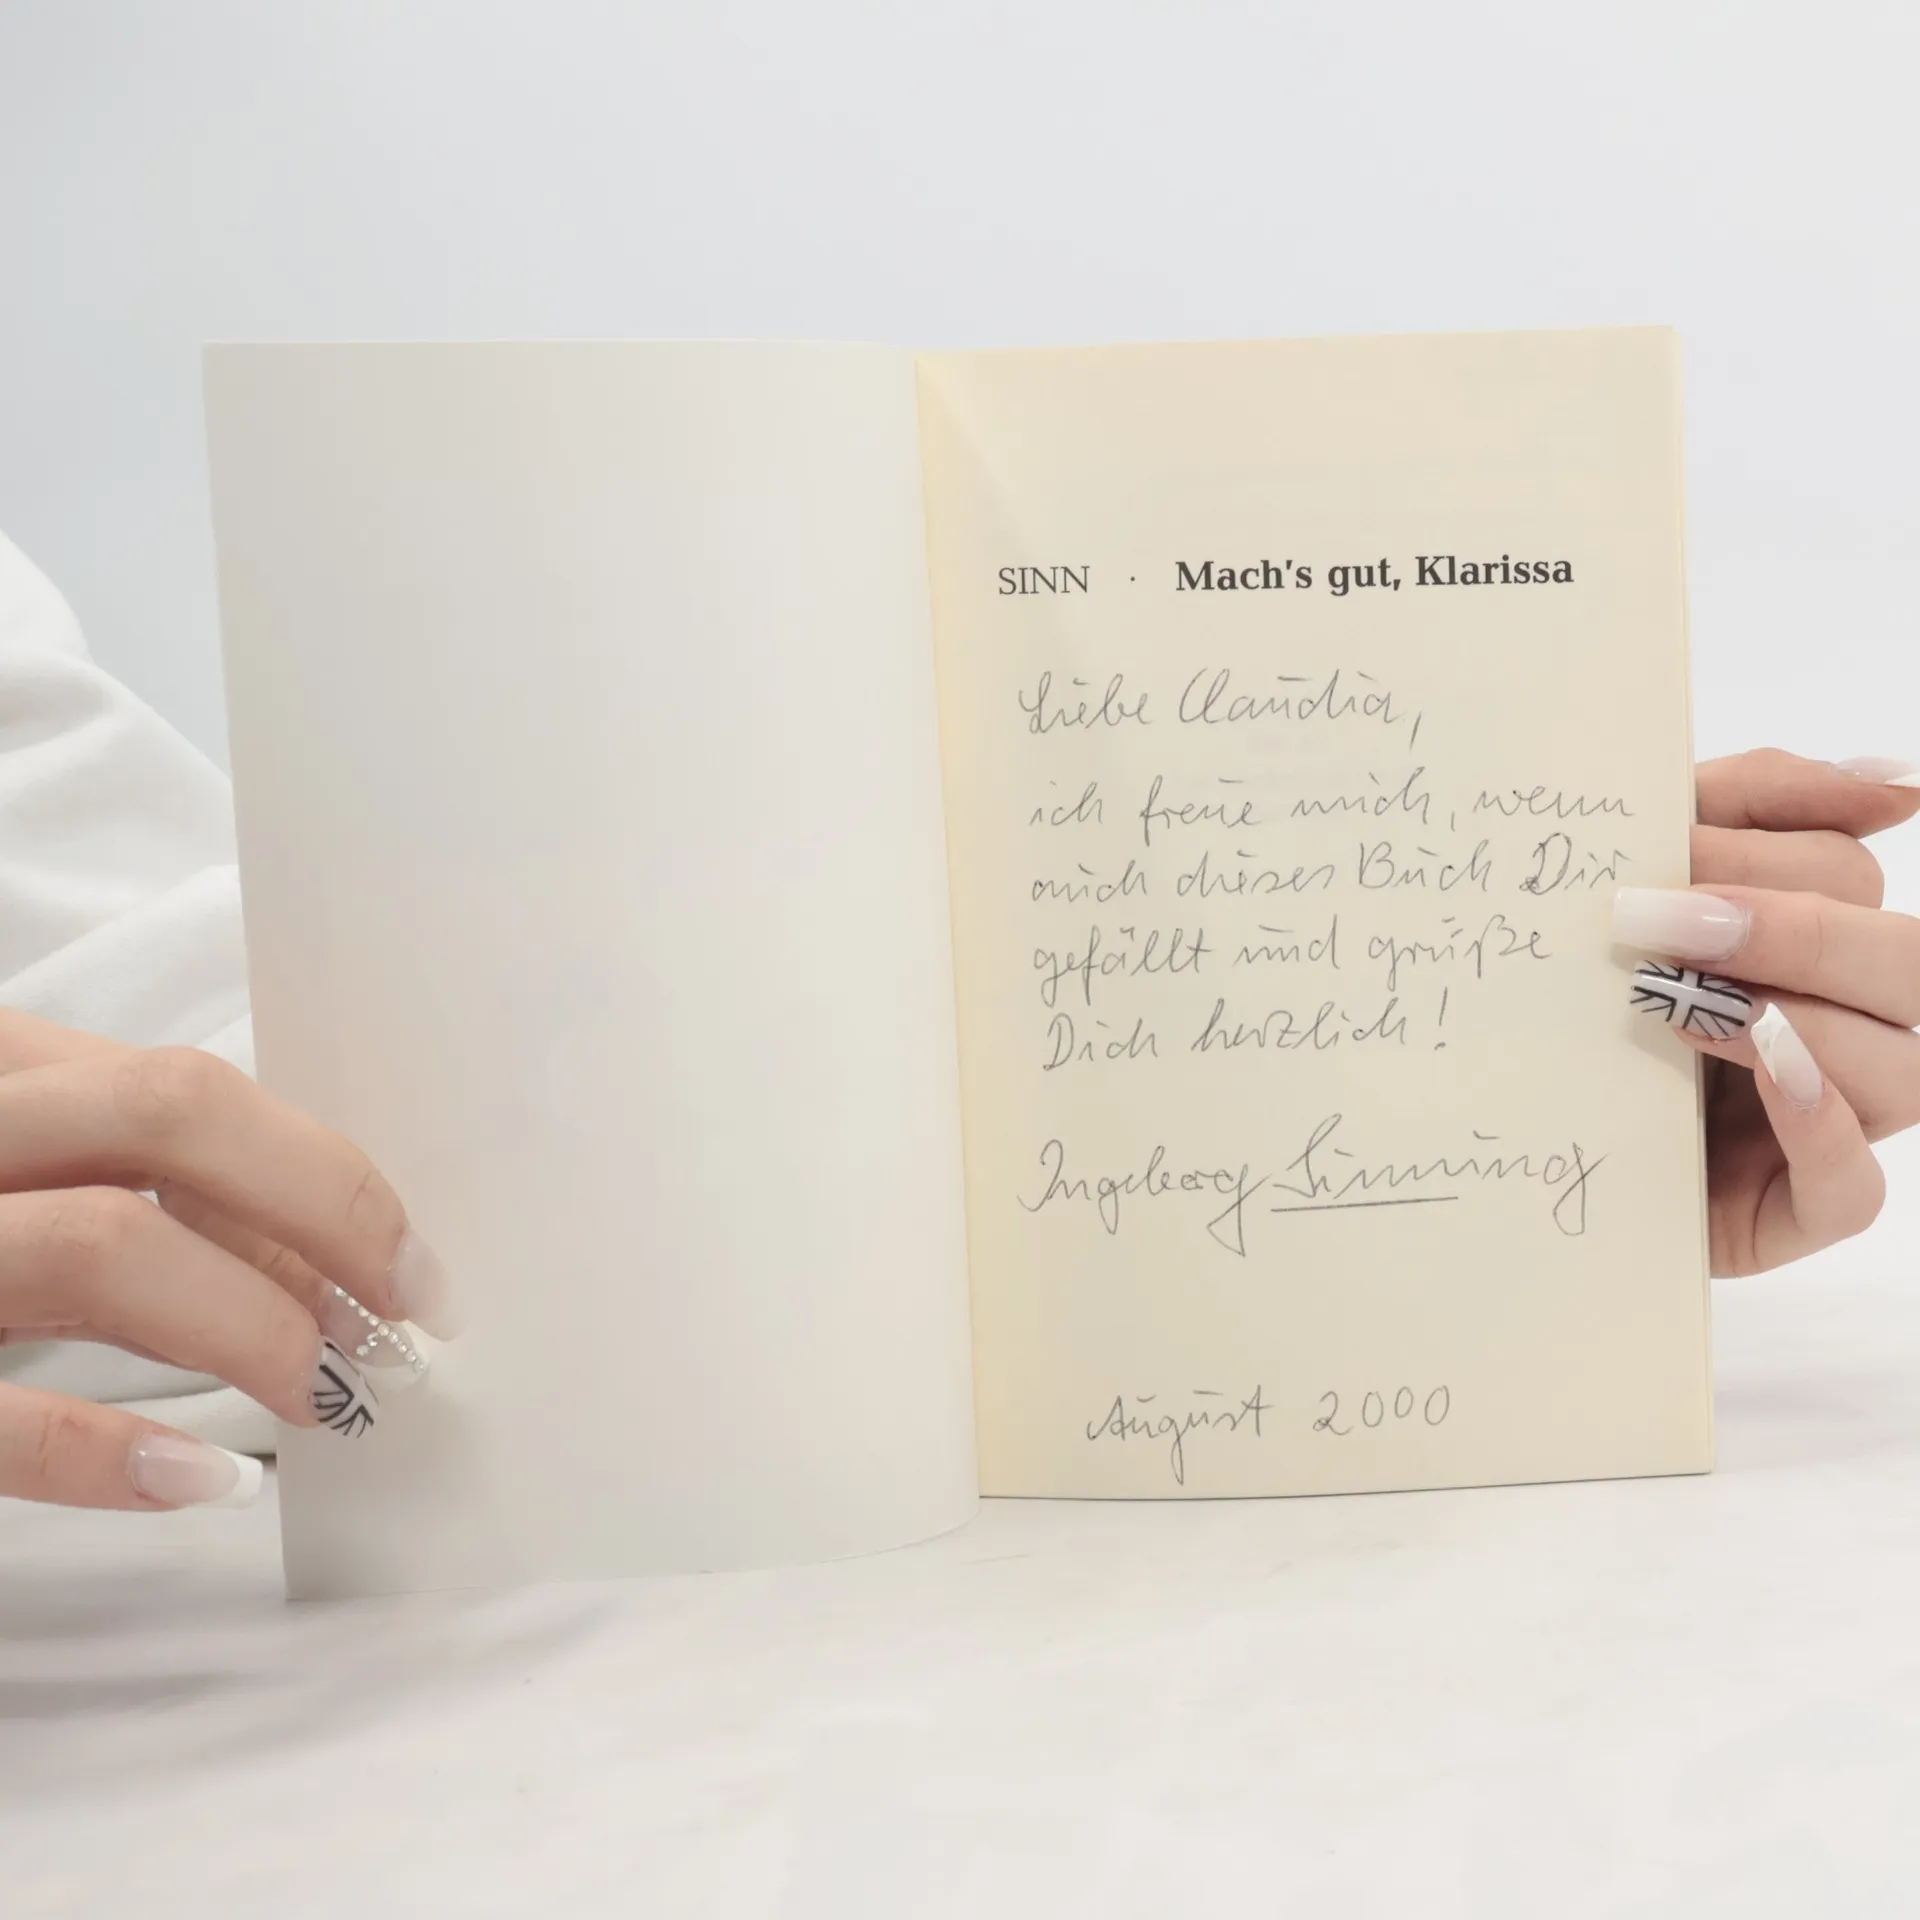 SINN · Mach's gut, Klarissa
Liebe Claudia,
ich freue mich, wenn
auch dieses Buch Dir
gefällt und grüße
Dich herzlich!
Ingeborg Sinnung
August 2000